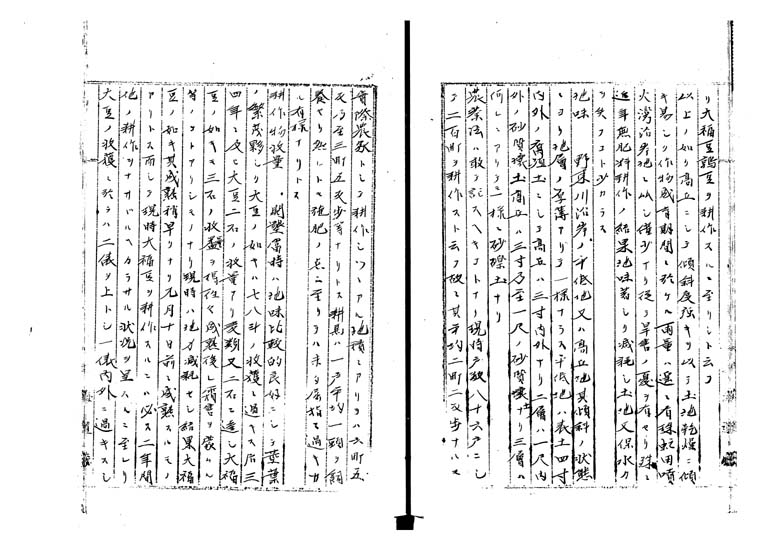 リ大福豆鶉豆ヲ耕作スルニ至リシト云フ
以上ノ如ク高丘ニシテ傾斜度強キヲ以テ土地乾燥ニ傾
キ易ク作物成育期間ニ於ケル雨量ハ邊ニ有珠虻田噴
火湾沿岸地ニ比シ僅少ナリ従テ旱害ノ憂ヲ有セリ殊ニ
近年無肥料耕作ノ結果地味著シク減耗シ土地又保水力
ヲ失フコト少カラス
地味 野束川沿岸ノ平低地又ハ高丘地其傾斜ノ状態
ニヨリ地層ノ厚薄アリテ一様ナラス平低地ハ表土四寸
内外ノ腐植土ニシテ高丘ハ三寸内外ナリ二層ハ一尺内
外ノ砂質壌土高丘ハ三寸乃至一尺ノ砂質壌土ナリ三層ハ
何レニアリテモ一様ニ砂礫土ナリ
農業法ハ敢テ記スヘキコトナク現時戸数八十六戸ニシ
テ二百町ヲ耕作スト云フ故ニ其平均二町二反歩ナルモ
實際農家トシテ耕作シツヽアル地積ニアリテハ六町五
反乃至三町五反歩
耕馬ハ一戸平均一頭ヲ飼
養セリ然レトモ施肥ノ点ニ至リテハ未タ
ル有様ナリトス
耕作物収量。開墾當時ハ地味比較的良好ニシテ莖葉
ノ繁茂夥シク大豆ノ如キハ七八斗ノ収獲ニ過キス后三
四年ニ及ヒ大豆二石ノ収量アリ麦類又二石ニ達シ大福
豆ノ如キモ三石ノ収益ヲ得
成熟後シ霜害ヲ蒙ル
等ノコトアリシモノナリ現時ハ地力減耗セシ結果大福
豆ノ如キ其成熟稍早クナリ九月十日前ニ成熟スルモノ
アリトス而シテ現時大福豆ヲ耕作スルニハ必ス二年間
他ノ耕作ヲナサヽルヘカラサル状況ヲ呈スルニ至レリ
大豆ノ収獲ニ於テハ二俵ヲ上トシ一俵内外ニ過キスシ